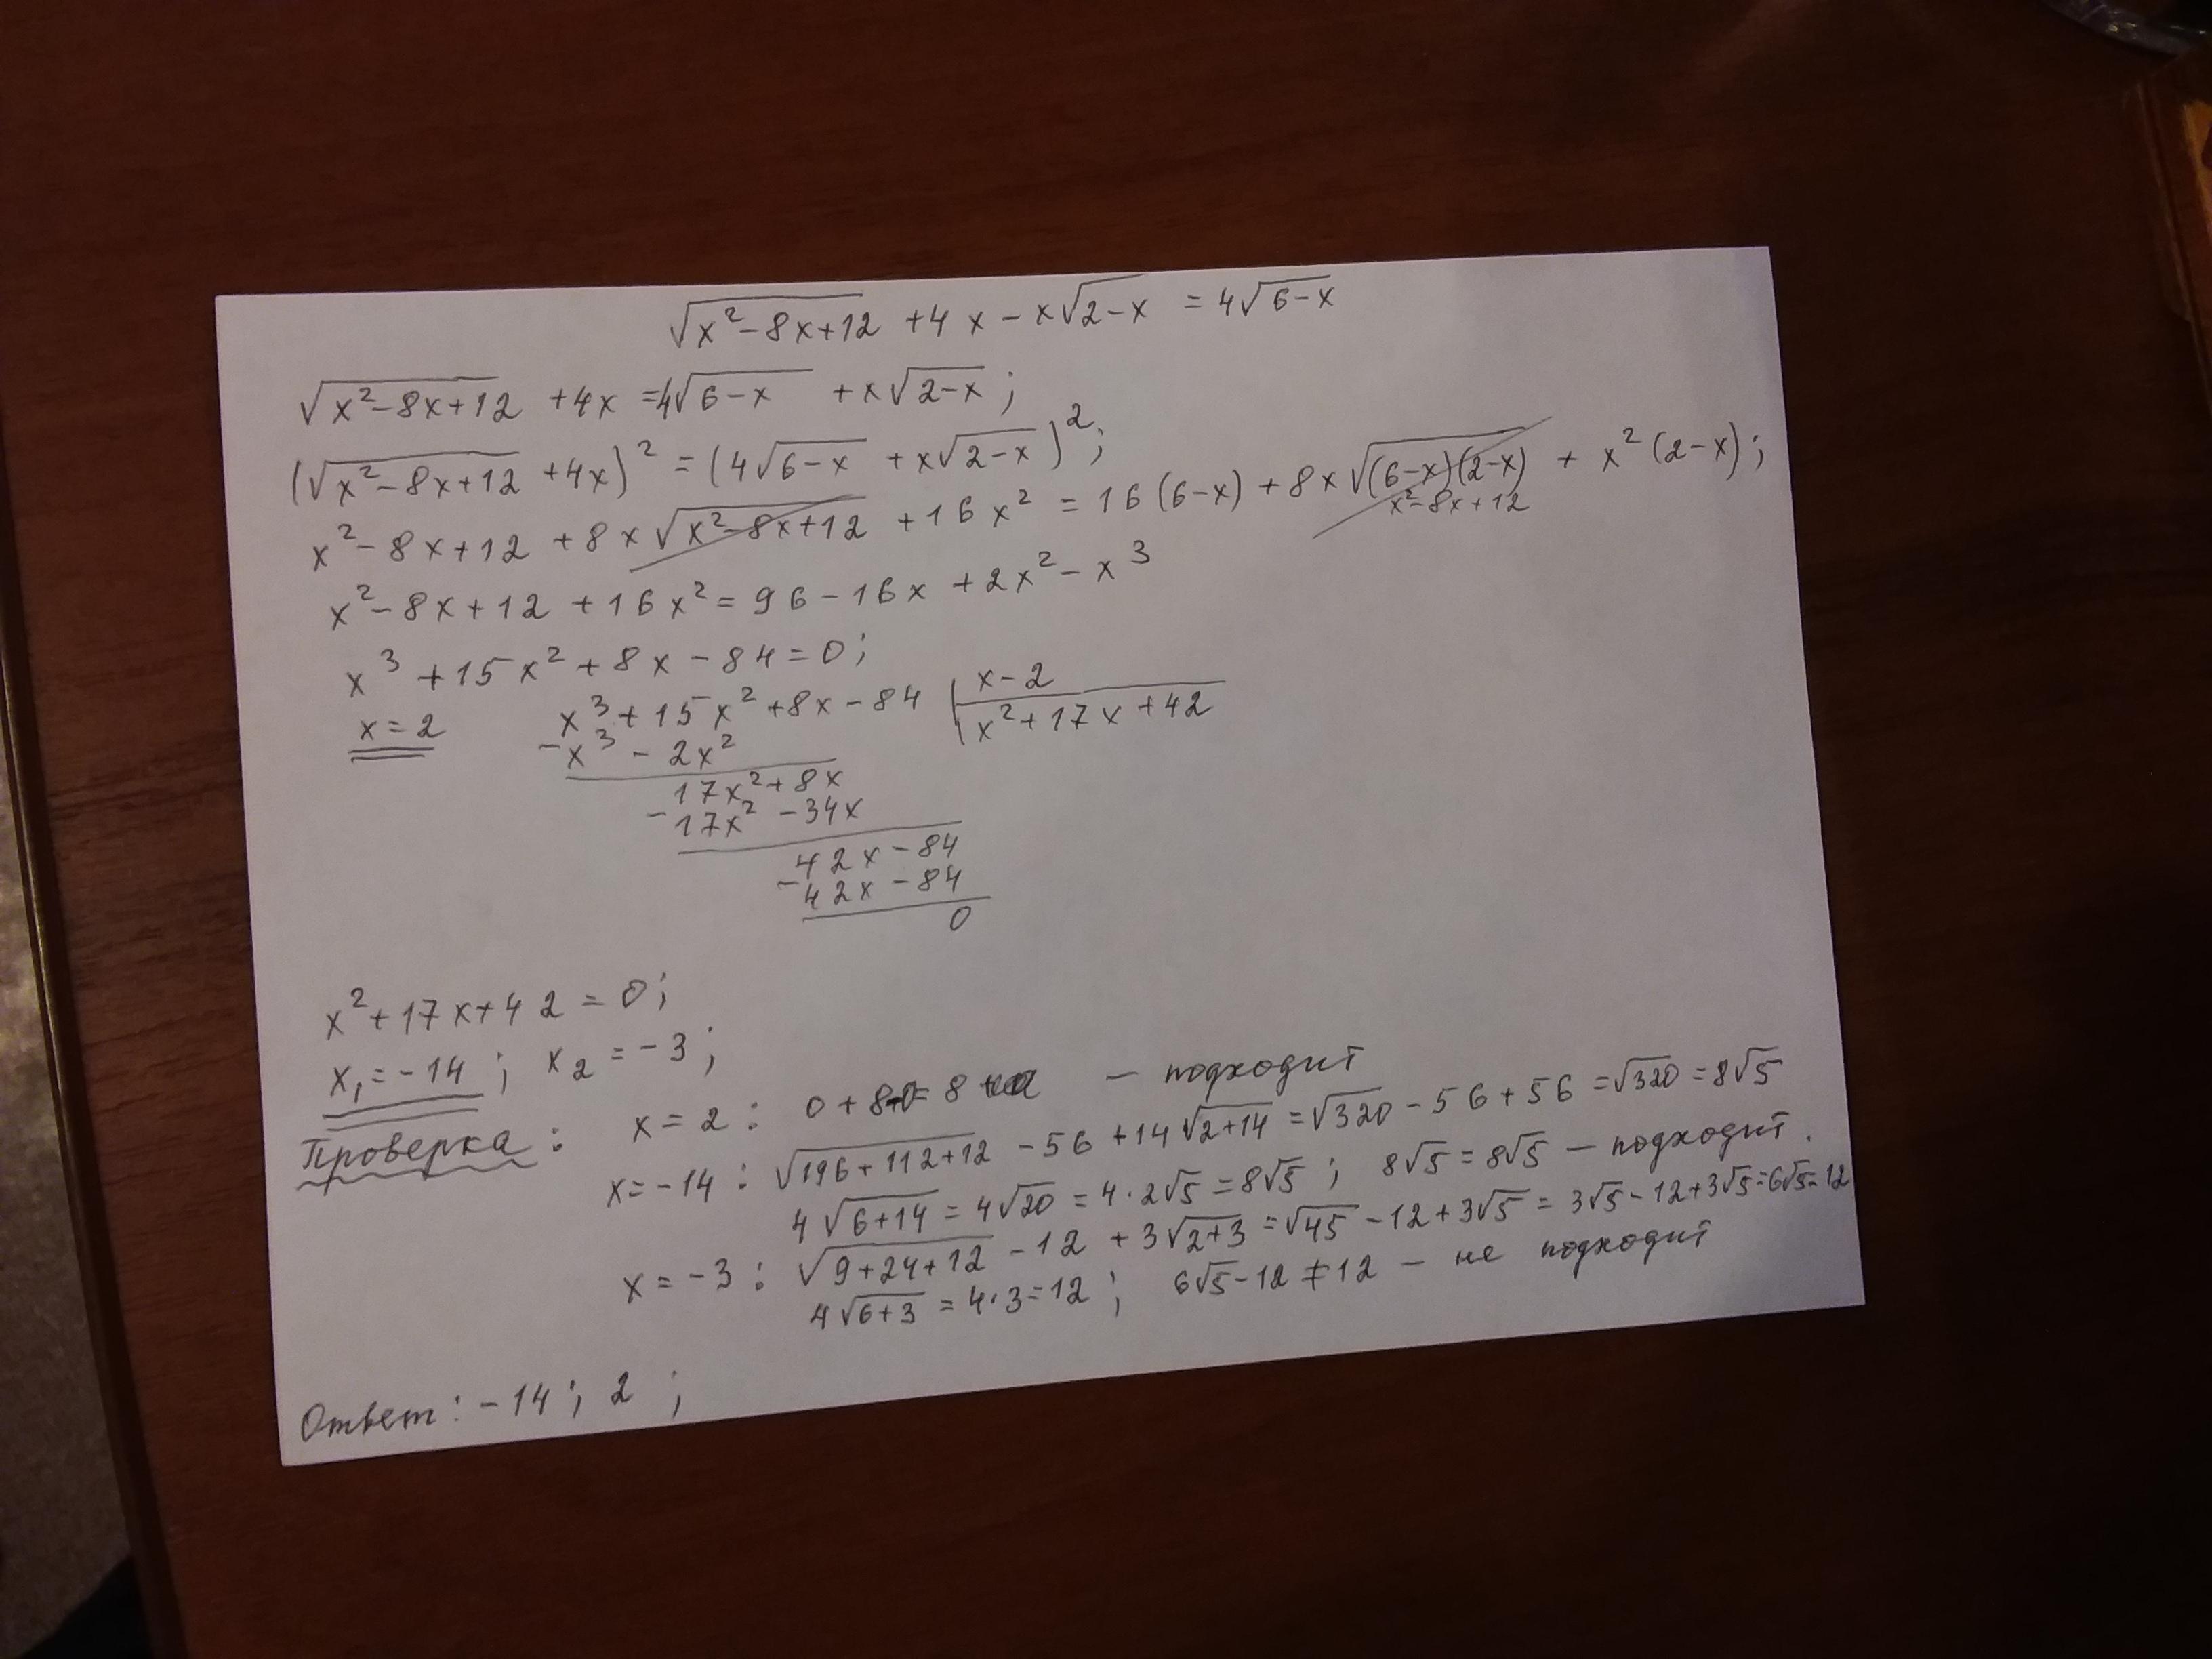 √(x²-8x+12) + 4x - x√(2-x) = 4√(6-x)
√(x²-8x+12) + 4x = 4√(6-x) + x√(2-x) ;
(√(x²-8x+12) + 4x)² = (4√(6-x) + x√(2-x))² ;
x²-8x+12 + 8x√(x²-8x+12) + 16x² = 16(6-x) + 8x√((6-x)(2-x)) + x²(2-x) ;
x²-8x+12
x²-8x+12 + 16x² = 96 - 16x + 2x² - x³
x³ + 15x² + 8x - 84 = 0 ;
x = 2
x³ + 15x² + 8x - 84 | x - 2
- x³ - 2x² | x² + 17x + 42
17x² + 8x
- 17x² - 34x
42x - 84
- 42x - 84
0
x² + 17x + 42 = 0 ;
x₁ = -14 ; x₂ = -3 ;
Проверка : x = 2 : 0 + 8 - 0 = 8 - подходит
x = -14 : √(196+112+12) - 56 + 14√(2+14) = √320 - 56 + 56 = √320 = 8√5
4√(6+14) = 4√20 = 4·2√5 = 8√5 ; 8√5 = 8√5 - подходит.
x = -3 : √(9+24+12) - 12 + 3√(2+3) = √45 - 12 + 3√5 = 3√5 - 12 + 3√5 = 6√5 - 12
4√(6+3) = 4·3 = 12 ; 6√5 - 12 ≠ 12 - не подходит
Ответ : -14 ; 2 ;